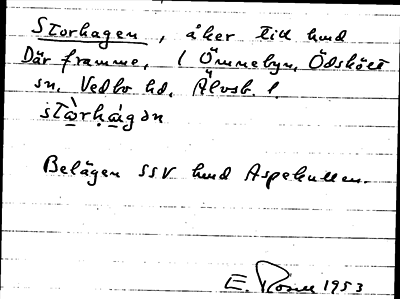 Storhagen, åker till hmd
Där framme, i Ömmebyn, Ödskölt
sn, Vedbo hd, Älvsb. l.
stòrhágən
Belägen SSV hmd Aspekullen.
E. 1953